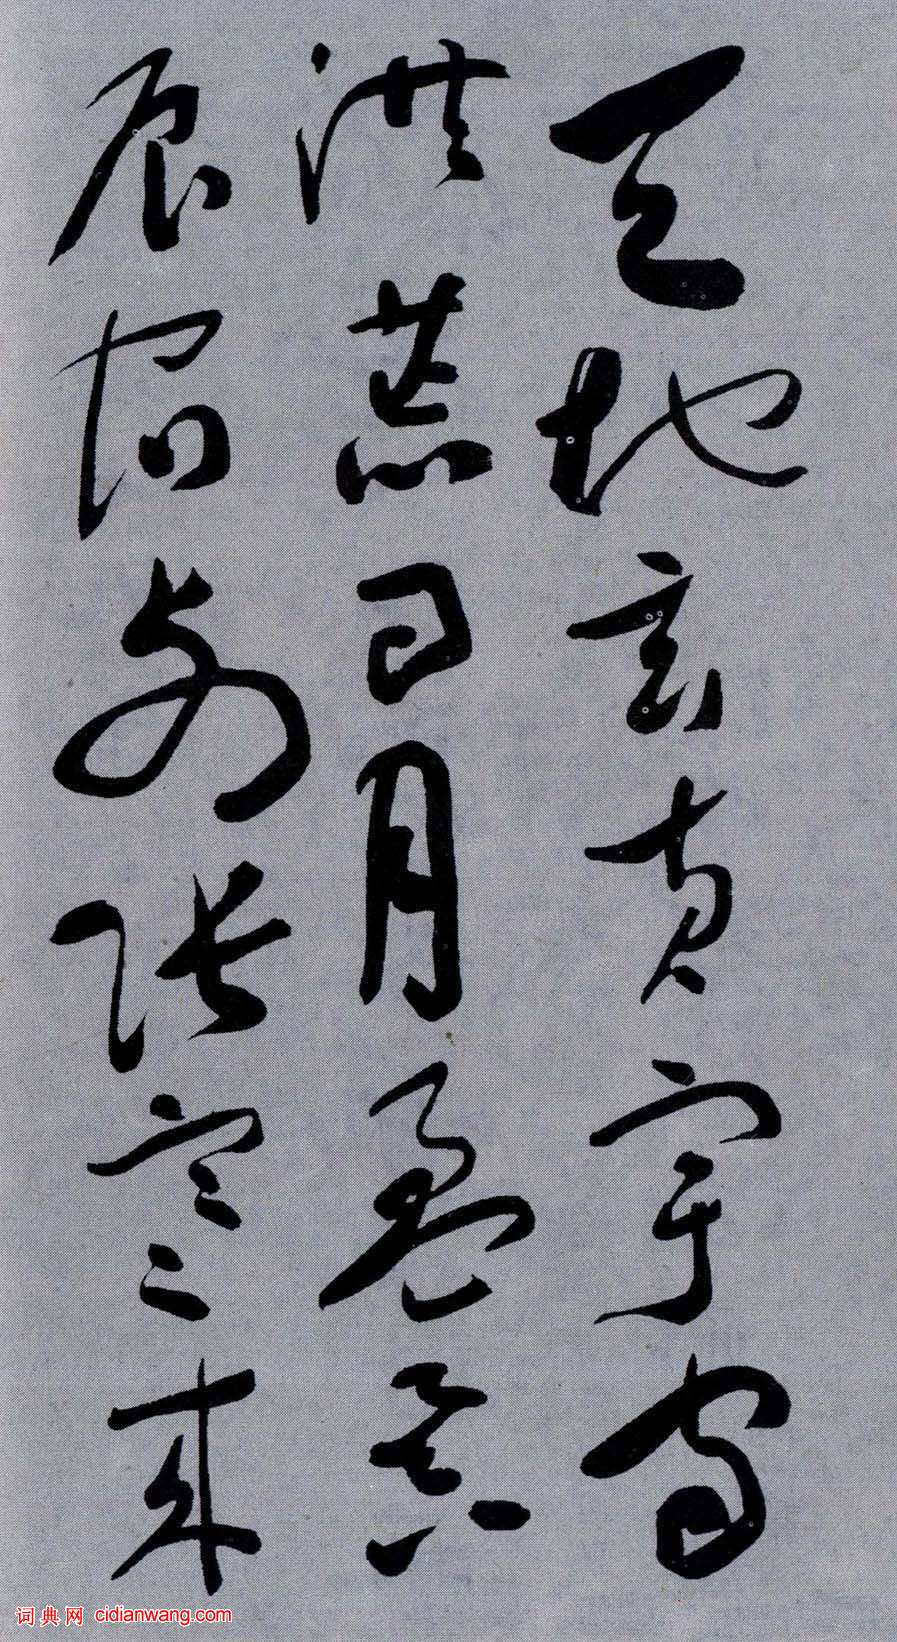 天地玄黄宇宙
洪荒日月盈昃
辰宿列张寒来
词典网 cidianwang.com